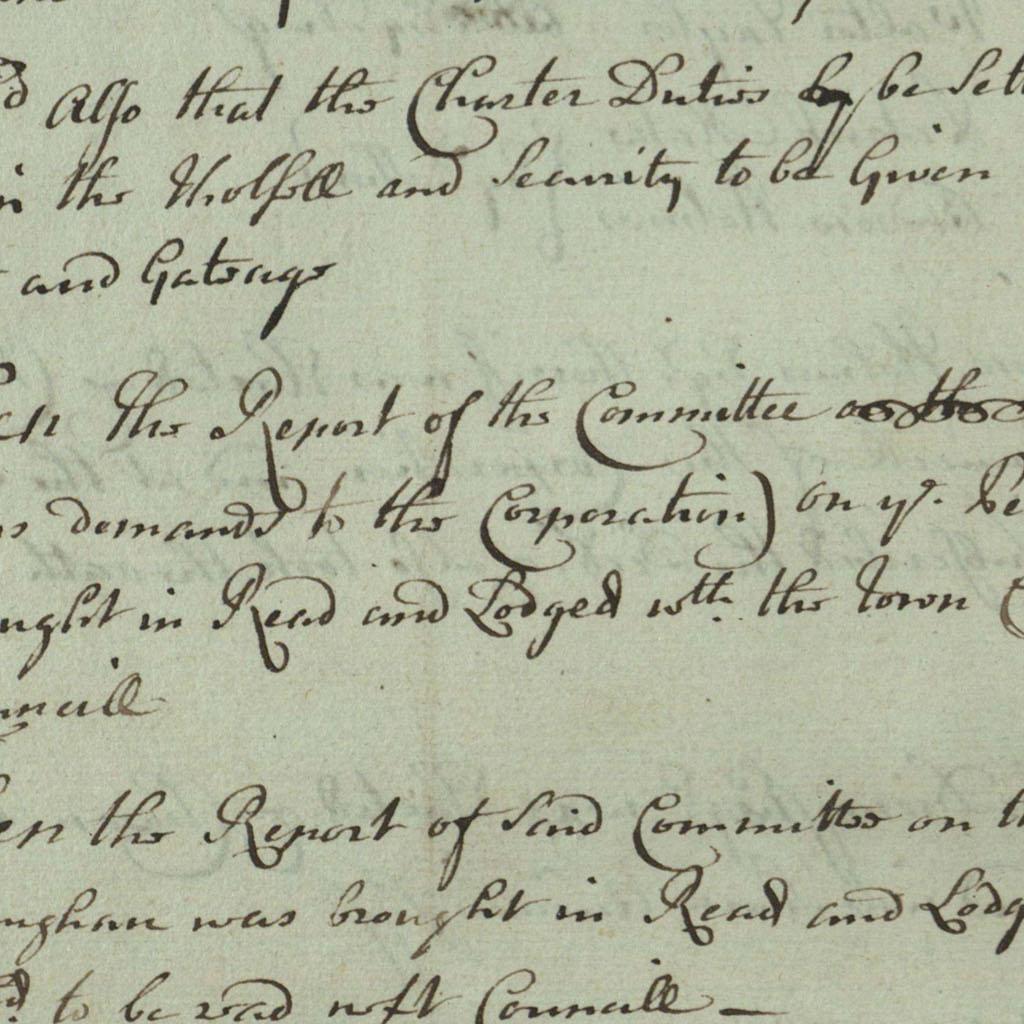 Also that the Charter Duties by be Sett
in the Tholsell and Security to be Given
and Gateage
the Report of the Committee as the
demands to the Corporation) on ye. Pe
ught in Read and Lodged wth. the Town C
uncill
the Report of Said Committee on th
ngham was brought in Read and Lodg
d to be read next Councill